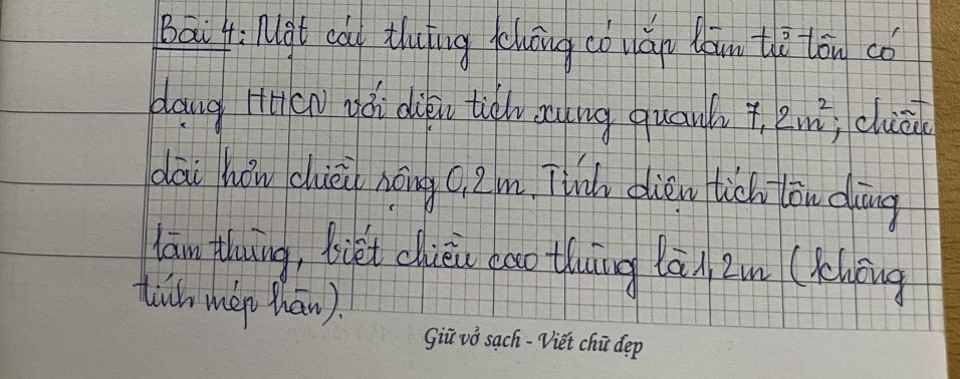 Bài 4: Một cái thùng không có nắp làm từ tôn có
dạng HHCN với diện tích xung quanh 7,2m²; chiều
dài hơn chiều rộng 0,2m. Tính diện tích tôn dùng
làm thùng, biết chiều cao thùng là 1,2m (không
tính mép hàn).
Giữ vở sạch - Viết chữ đẹp